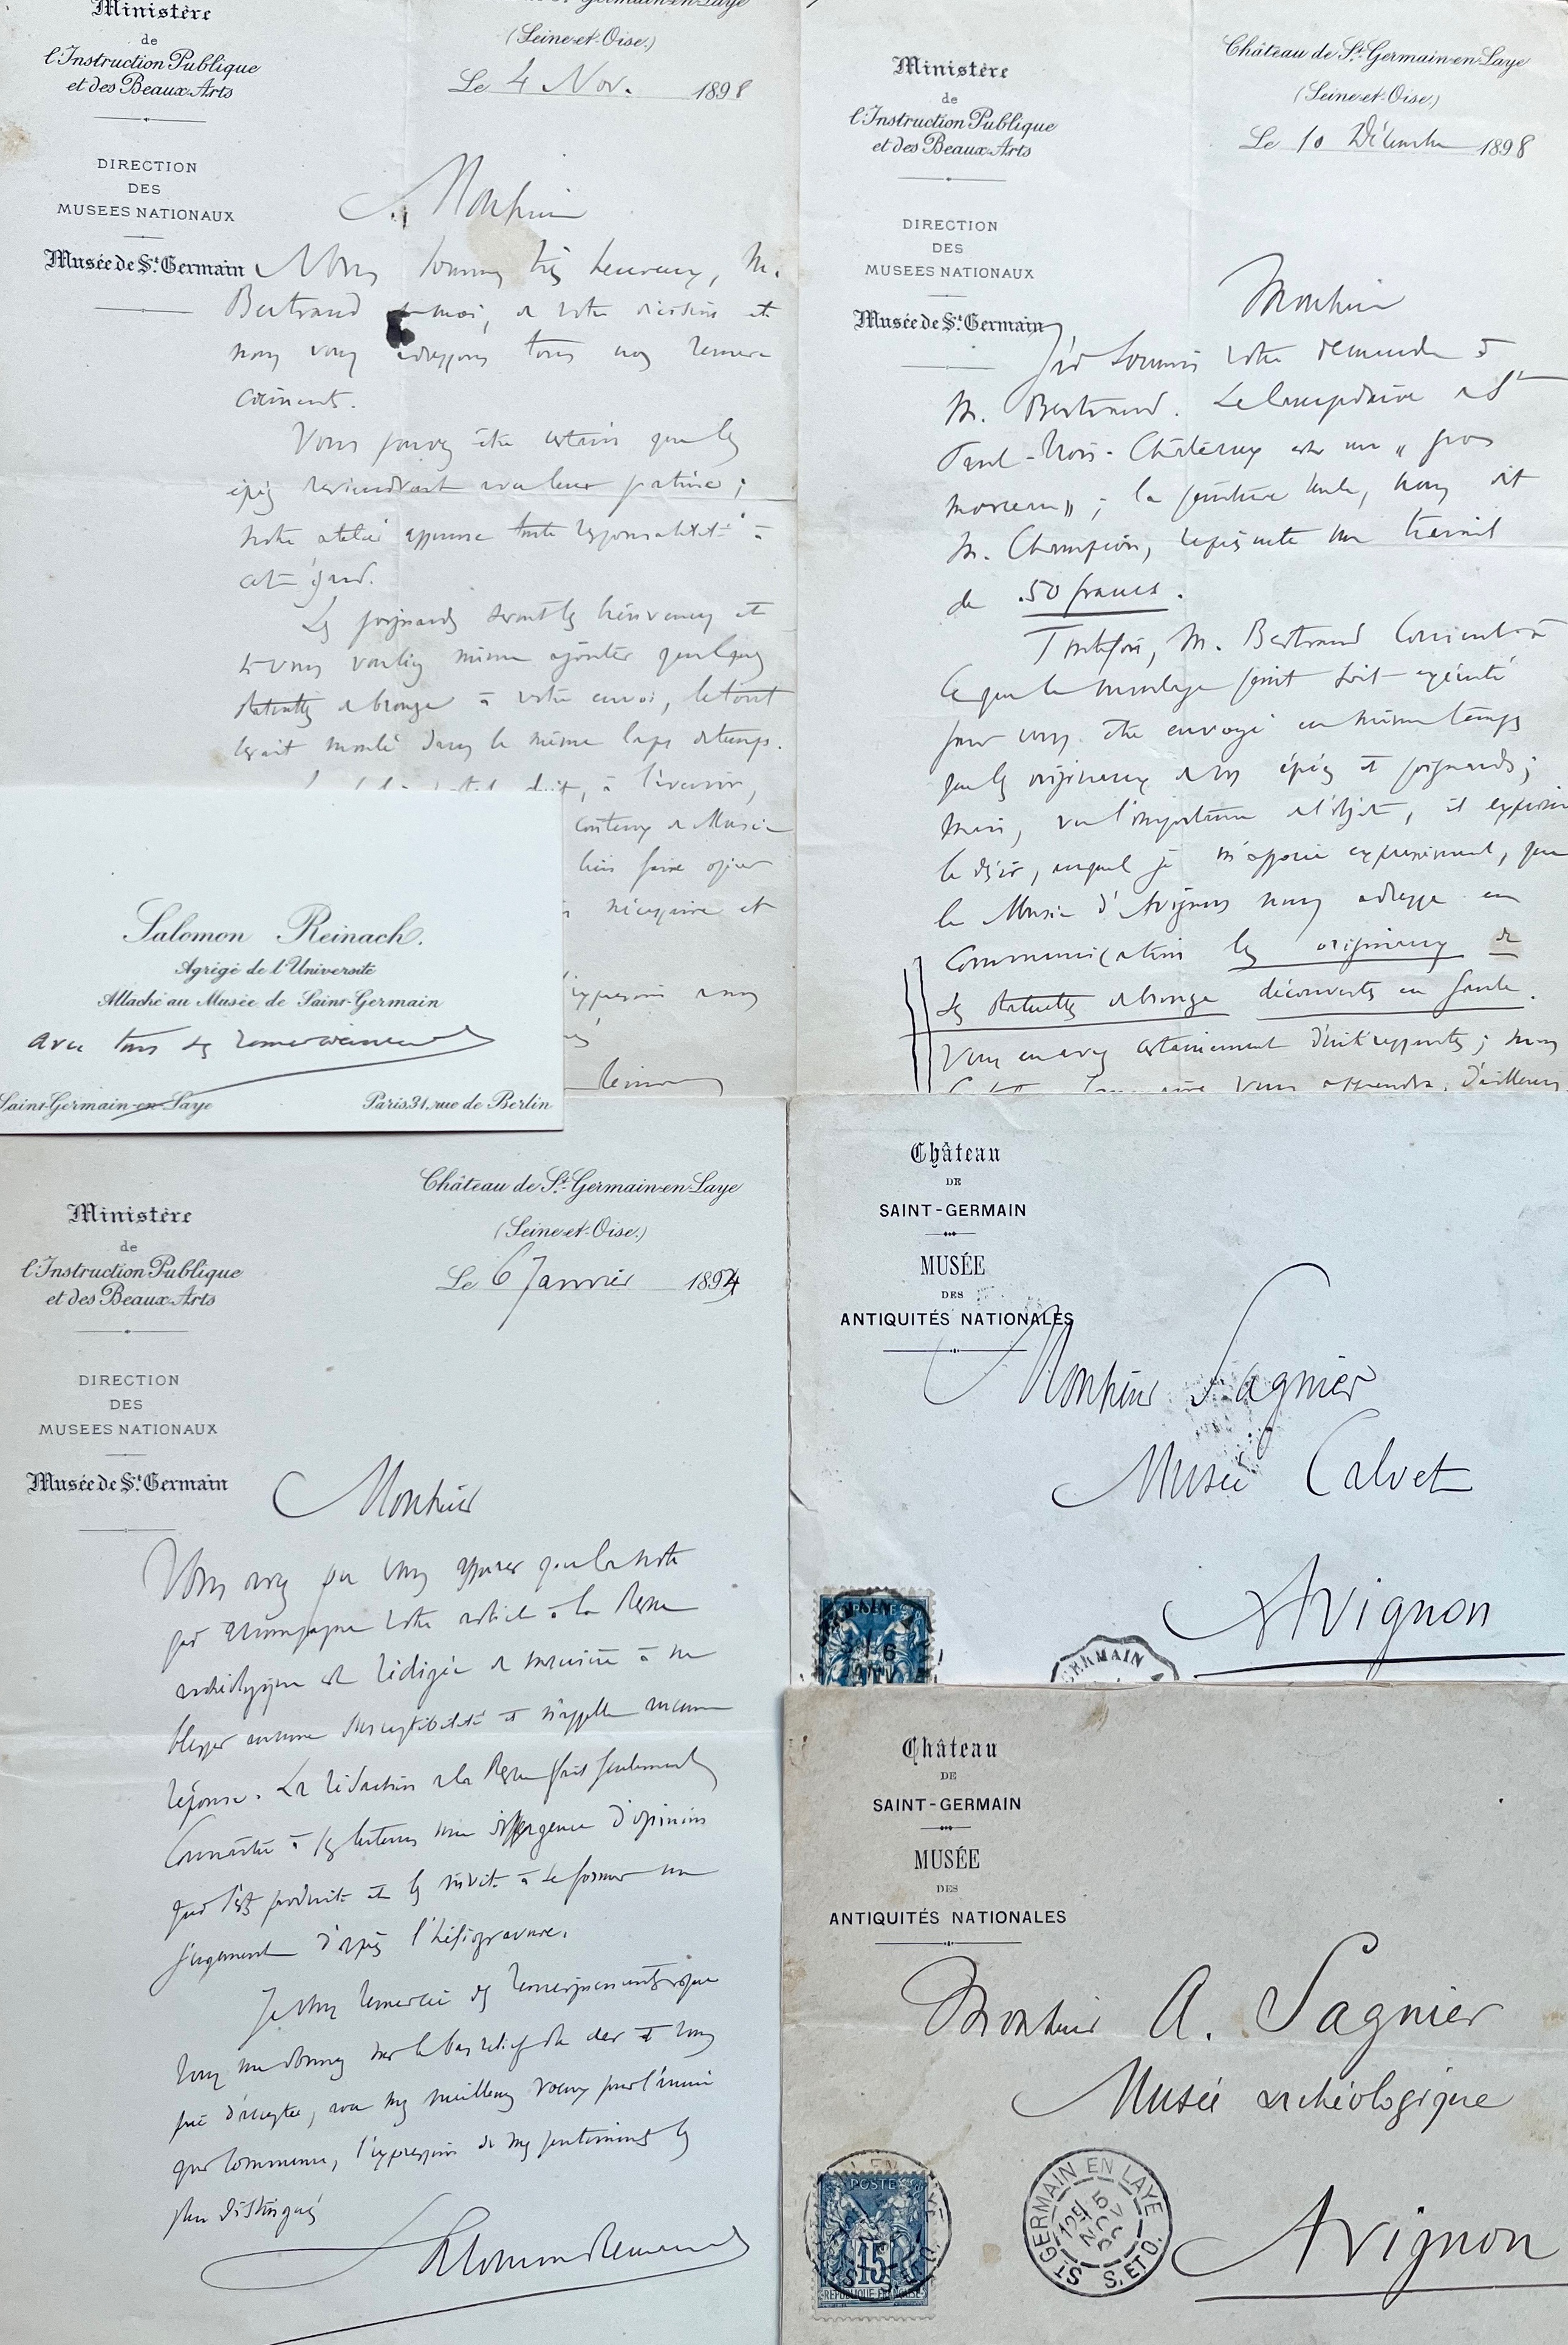 Ministère
de
l'Instruction Publique
et des Beaux-Arts
DIRECTION
DES
MUSEES NATIONAUX
Musée de St. Germain
St. Germain-en-Laye
(Seine-et-Oise.)
Le 4 Nov. 1898
Monsieur
Nous sommes très heureux, M.
Bertrand et moi, de votre décision et
nous vous adressons tous nos remer-
ciements.
Vous pouvez être certain que les
épées reviendront avec leur patine ;
notre atelier assume toute responsabilité à
cet égard.
Les poignards seront les bienvenus et
si vous vouliez même ajouter quelques
statuettes de bronze à votre envoi, le tout
serait moulé dans le même laps de temps.
doit, à l'avenir,
contenu Musée
bien faire
nécessaire et
Salomon Reinach.
Agrégé de l'Université
Attaché au Musée de Saint-Germain
avec tous ses remerciements
Saint-Germain-en-Laye
Paris 31, rue de Berlin
Ministère
de
l'Instruction Publique
et des Beaux-Arts
DIRECTION
DES
MUSEES NATIONAUX
Musée de St. Germain
Château de St. Germain-en-Laye
(Seine-et-Oise.)
Le 10 Décembre 1898
Monsieur
J'ai soumis votre demande à
M. Bertrand. Le lampadaire de St
Paul-Trois-Châteaux est un „ gros
morceau „ ; la peinture seule, nous dit
M. Champion, représente un travail
de 50 francs.
Toutefois, M. Bertrand consent à
ce que le moulage peint soit exécuté
pour vous être envoyé en même temps
que les originaux de vos épées et poignards ;
mais, vu l'importance de l'objet, il exprime
le désir, auquel je m'associe expressément, que
le Musée d'Avignon nous adresse en
communication les originaux de
ses statuettes de bronze découvertes en Gaule.
Vous en avez certainement d'intéressantes ; nous
vous apprendra, d'ailleurs
Ministère
de
l'Instruction Publique
et des Beaux-Arts
DIRECTION
DES
MUSEES NATIONAUX
Musée de St. Germain
Château de St. Germain-en-Laye
(Seine-et-Oise.)
Le 6 Janvier 1894
Monsieur
Vous avez pu vous assurer que la note
qui accompagne votre article à la Revue
archéologique est rédigée de manière à ne
blesser aucune susceptibilité et n'appelle aucune
réponse. La rédaction de la Revue fait seulement
connaître à ses lecteurs une divergence d'opinions
qui s'est produite et les invite à se former un
jugement d'après l'héliogravure.
Je vous remercie des renseignements que
vous me donnez sur le bas relief de cler et vous
prie d'accepter, avec mes meilleurs voeux pour l'année
qui commence, l'expression de mes sentiments les
plus distingués
Salomon Reinach
Château
DE
SAINT-GERMAIN
MUSÉE
DES
ANTIQUITÉS NATIONALES
Monsieur Sagnier
Musée Calvet
Avignon
GERMAIN
Château
DE
SAINT-GERMAIN
MUSÉE
DES
ANTIQUITÉS NATIONALES
Monsieur A. Sagnier
Musée archéologique
Avignon
POSTE
15
RÉPUBLIQUE FRANÇAISE
ST GERMAIN EN LAYE
5
NOV
S. ET O.